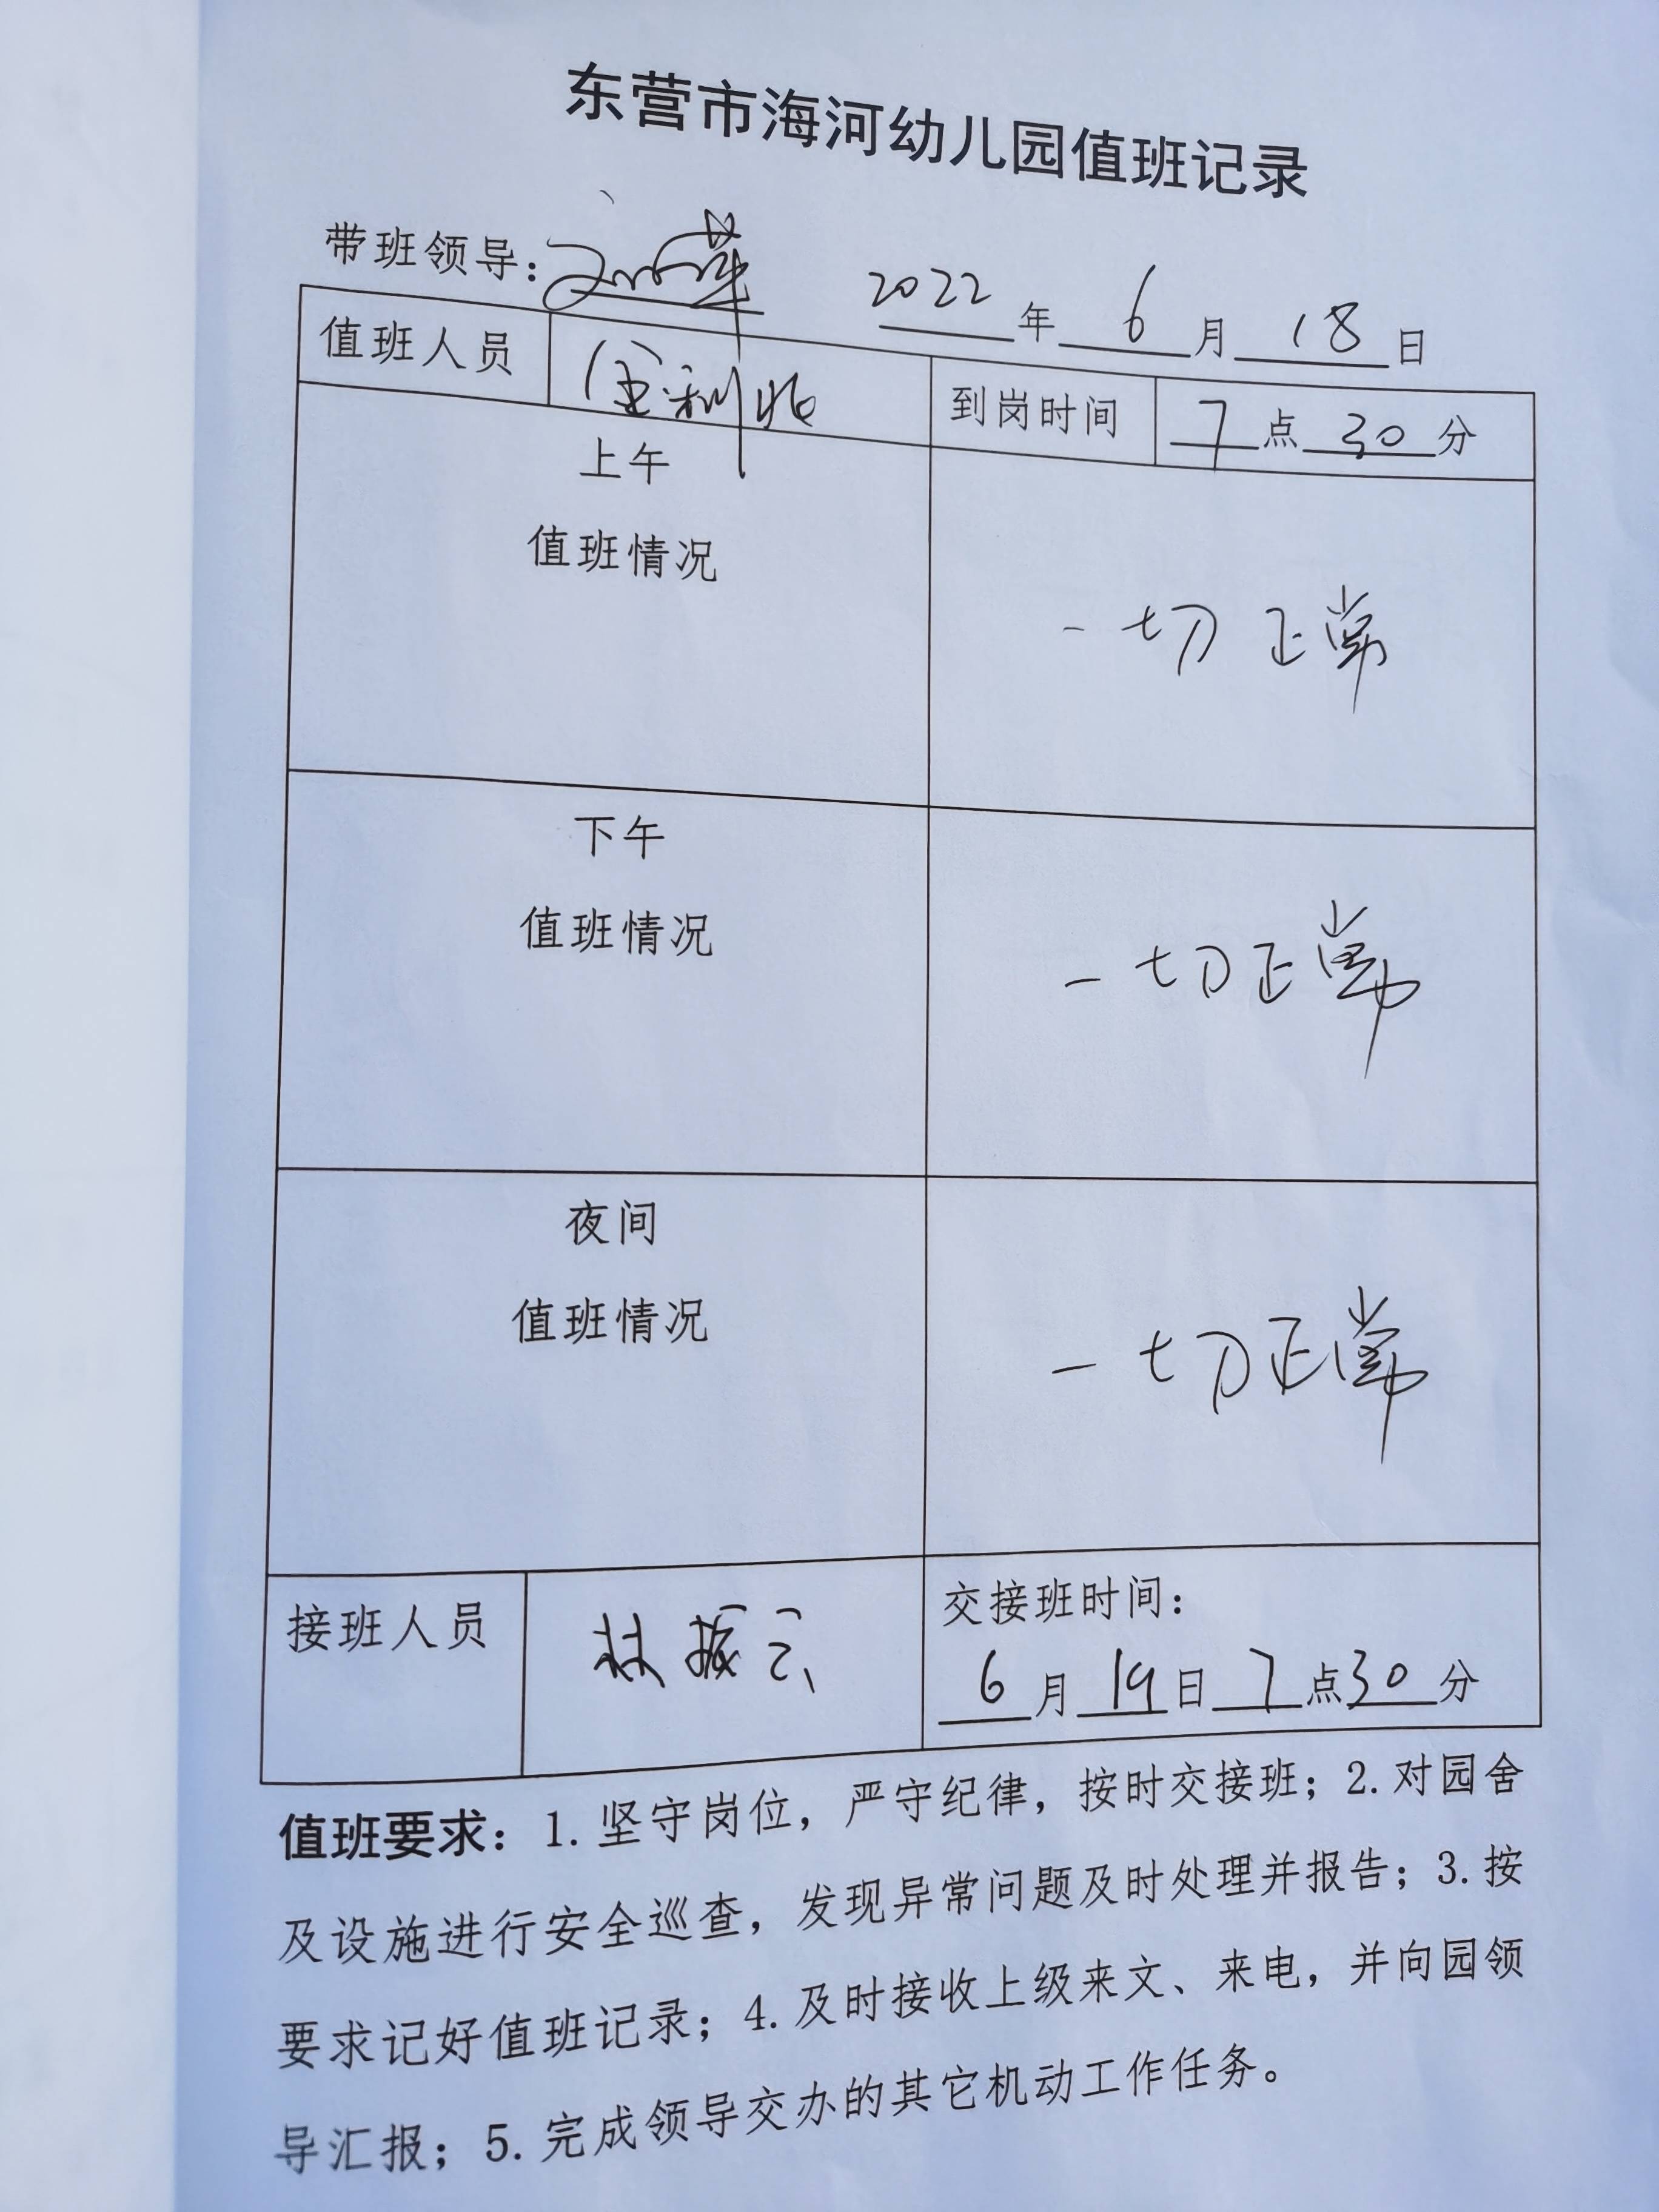 东营市海河幼儿园值班记录
带班领导: 2022年6月18日
值班人员 到岗时间 7点30分
上午
值班情况
一切正常
下午
值班情况
一切正常
夜间
值班情况
一切正常
接班人员 林振云 交接班时间:
6月19日7点30分
值班要求:1.坚守岗位,严守纪律,按时交接班;2.对园舍
及设施进行安全巡查,发现异常问题及时处理并报告;3.按
要求记好值班记录;4.及时接收上级来文、来电,并向园领
导汇报;5.完成领导交办的其它机动工作任务。